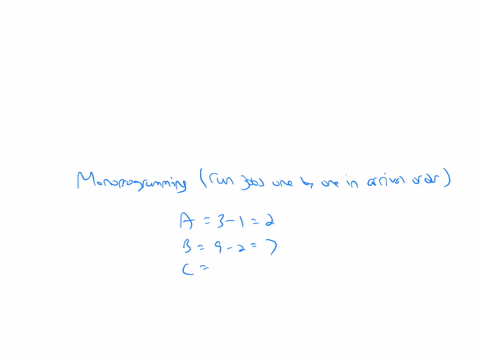 Monoprogramming (run jobs one by one in arrival order)
A = 3 - 1 = 2
B = 9 - 2 = 7
C =